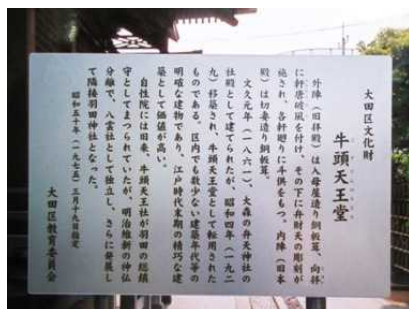 大田区文化財
牛頭天王堂
外陣(旧拝殿)は入母屋造り銅板葺、向拝
に軒唐破風を付け、その下に弁財天の彫刻が
施され、各軒廻りに斗供をもつ。内陣(旧本
殿)は切妻造り銅板葺。
文久元年(一八六一)、大森の弁天神社の
社殿として建てられたが、昭和四年(一九二
九)移築され、牛頭天王堂として転用された
ものである。区内でも数少ない建築年代等の
明確な建物であり、江戸時代末期の精巧な建
築として価値が高い。
自性院には旧来、牛頭天王社が羽田の総鎮
守としてまつられていたが、明治維新の神仏
分離で、八雲社として独立し、さらに発展し
て隣接羽田神社となった。
昭和五十年(一九七五)三月十九日指定
大田区教育委員会